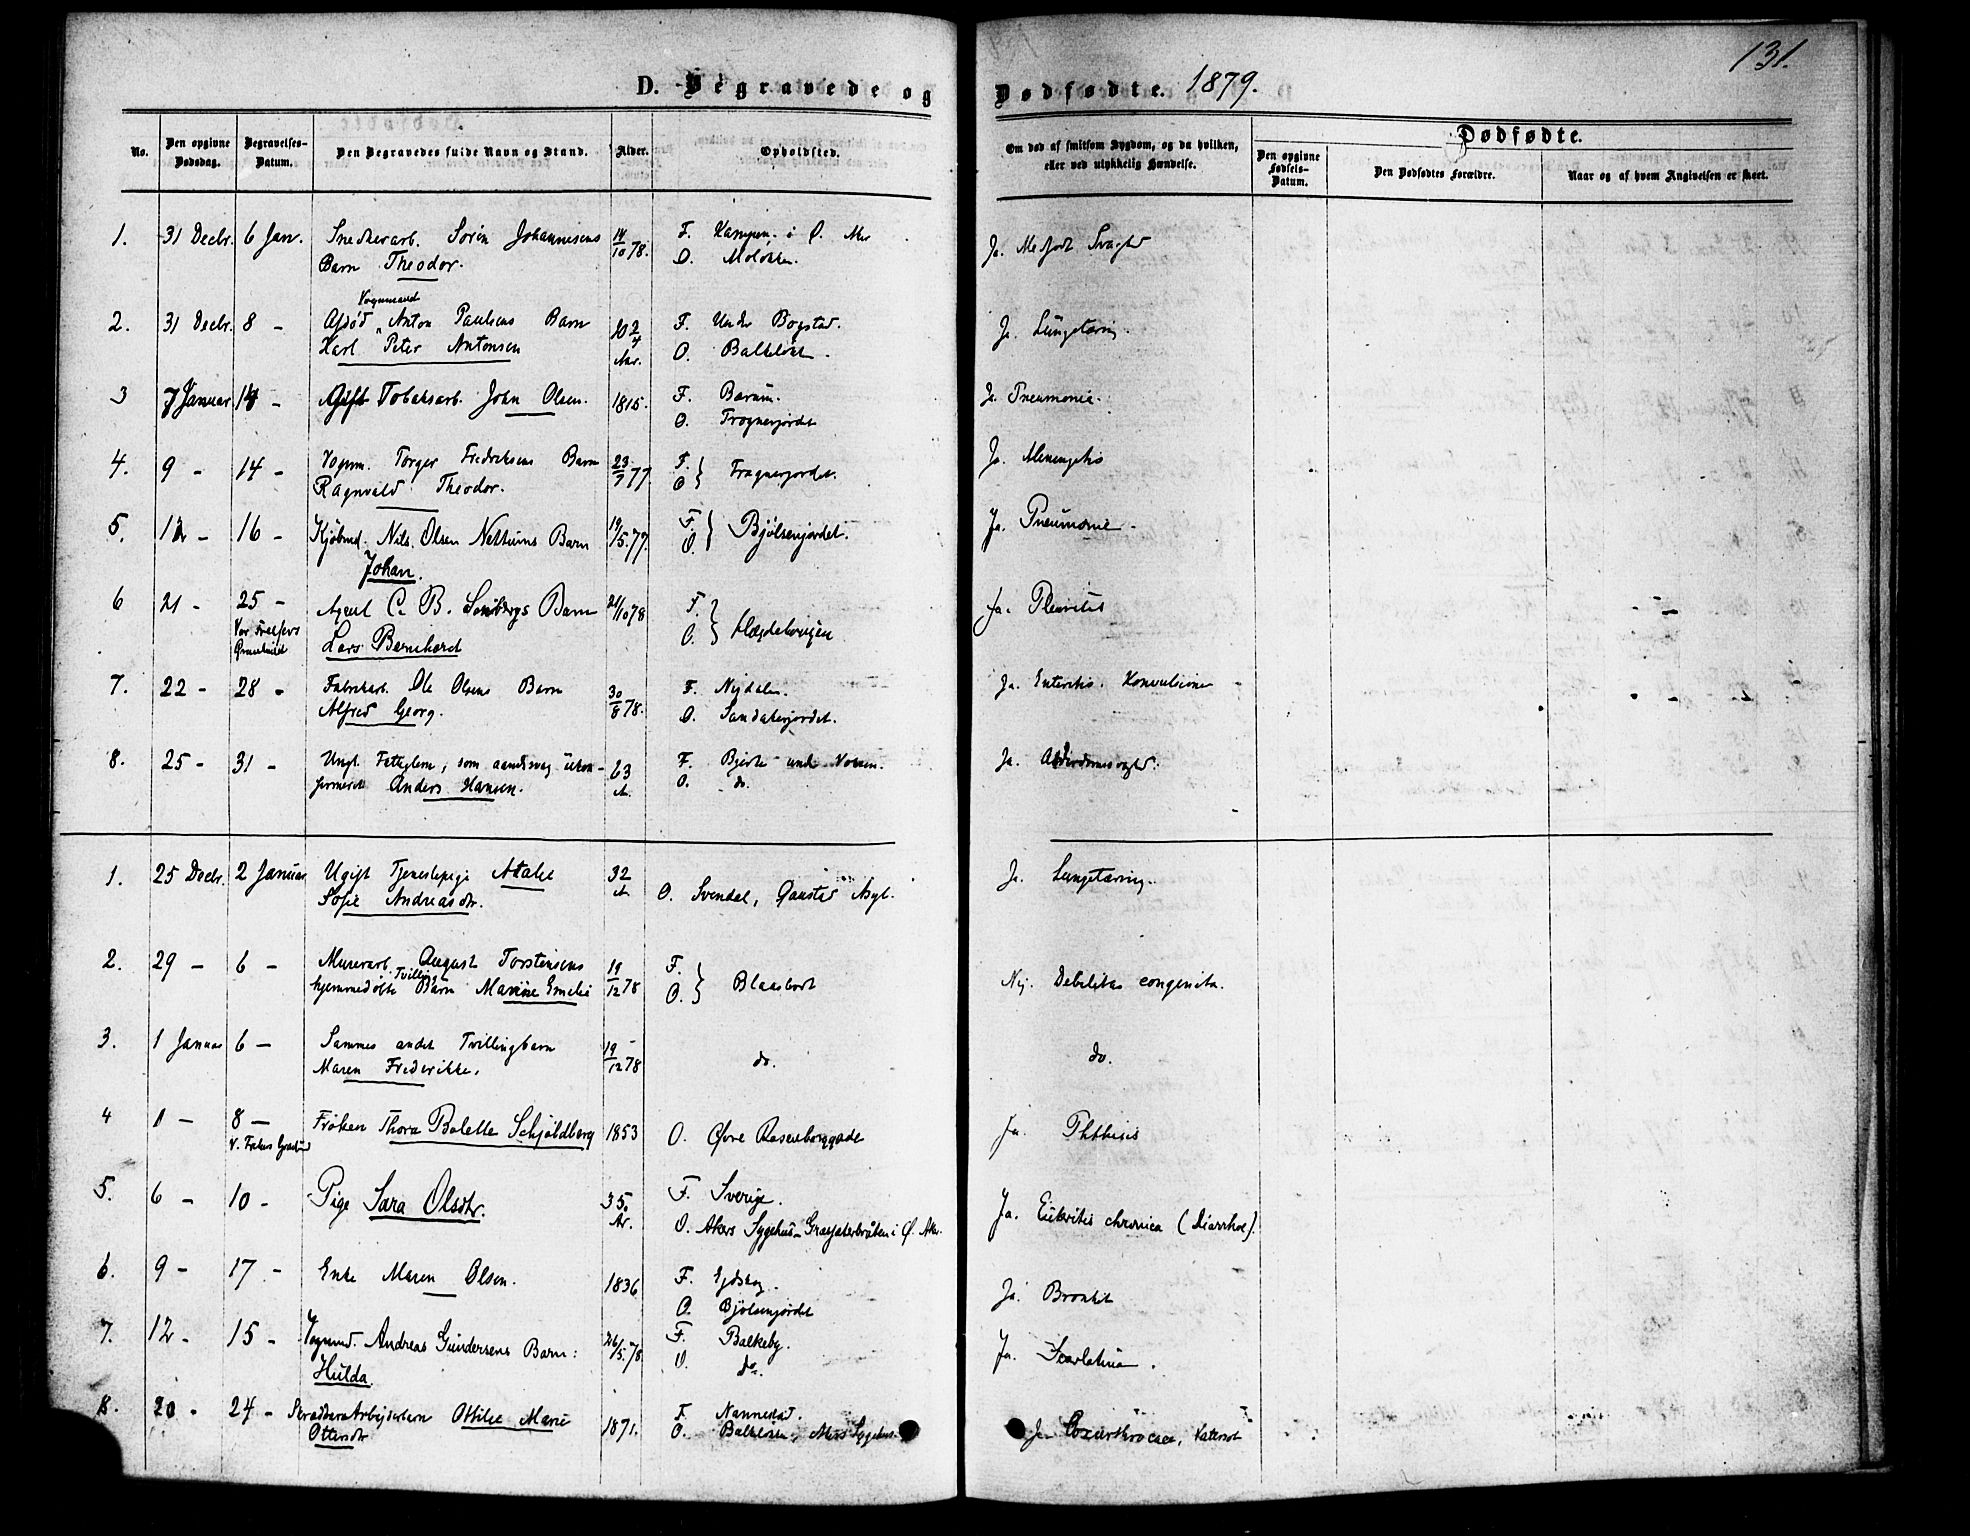 131.
D. Begravede og Dødfødte. 1879.
No.
Den opgivne Dødsdag.
Begravelses-Datum.
Den Begravedes fulde Navn og Stand.
Alder.
Opholdsted.
Om død af smitsom Sygdom, og da hvilken,
eller ved ulykkelig Hændelse.
Dødfødte.
Den opgivne Fødsels-Datum.
Den Dødfødtes Forældre.
Naar og af hvem Angivelsen er skeet.
1. 31 Decbr. 6 Jan. Snedkerarb. Sørin Johannesens 14/10 78. F. Kampen i Ø. Aker Ja. Medfødt Svaghed
Barn Theodor. O. Moløkken.
Vognmand
2. 31 Decbr. 8 - Afdød Anton Paulsens Barn 10 2/4 F. Under Bogstad. Ja. Lungetæring.
Karl Peter Antonsen Aar. O. Balkeløk.
3 7 Januar 14 - Gift Tobaksarb. John Olsen. 1815. F. Bærum. Ja. Pneumonie.
O. Frognerjordet
4. 9 - 14 - Vognm. Torger Fredriksens Barn 23/9 77 F. O. Frognerjordet. Ja. Meningitis
Ragnvald Theodor.
5. 12 - 16 - Kjøbmd. Nils Olsen Nettums Barn 19/5.77. F. O. Bjølsenjordet. Ja. Pneumonie.
Johan.
6 21 - 25 - Agent C. B. Barn 21/10 78 F. O. Hægdehougen Ja. Pleuritis
Vor Frelsers Gravlund Lars Bernhard
7. 22 - 28 - Fabrikarb. Ole Olsens Barn 30/8 78. F. Nydalen. Ja. Enteritis. Konvulsioner
Alfred Georg. O. Sandakerjordet.
8. 25 - 31 - Ungk. Fattiglem, som aandssvag ukon- 63 F. Bjerke under Voxen. Ja. Alderdomssvaghed.
firmeret Anders Hansen. A. O. do.
1. 25 Decbr. 2 Januar Ugift Tjenestepige Atalie 32 Ja. Lungetæring.
Sofie Andreasdtr. A. O. Svendal, Gaustad Asyl.
2. 29 - 6 - Murerarb. August Torstensens 19/12 78 F. O. Blaasbort Nej. Debilitas congenita.
hjemmedøbte Tvilling Barn Marine Emelie
3. 1 Januar 6 - Sammes andet Tvillingbarn 19/12 78 do. do.
Maren Frederikke.
4 1 - 8 - Frøken Thora Bolette Schjoldberg 1853 O. Øvre Rosenborggade Ja. Phthisis
V. Frelsers Gravlund
5. 6 - 10 - Pige Sara Olsdtr. 35 Ar. F. Sverige. Ja. Enteritis chronica (Diarrhoe).
O. Akers Sygehus - i Ø. Aker.
6. 9 - 17 - Enke Maren Olsen. 1836 F. Eidskog. Ja. Bronkit
O. Bjølsenjordet
7. 12 - 15 - Vognmd. Andreas Gundersens Barn: 26/5.78 F. Balkeby. Ja. Scarlatina.
Hulda. O. do.
8. 20 - 24 - Arbejderbarn Ottilie Marie 1871. F. Nannestad. Ja. Coxarthrocace,
Ottersdtr O. Balkeløkken, Akers Sygehus.